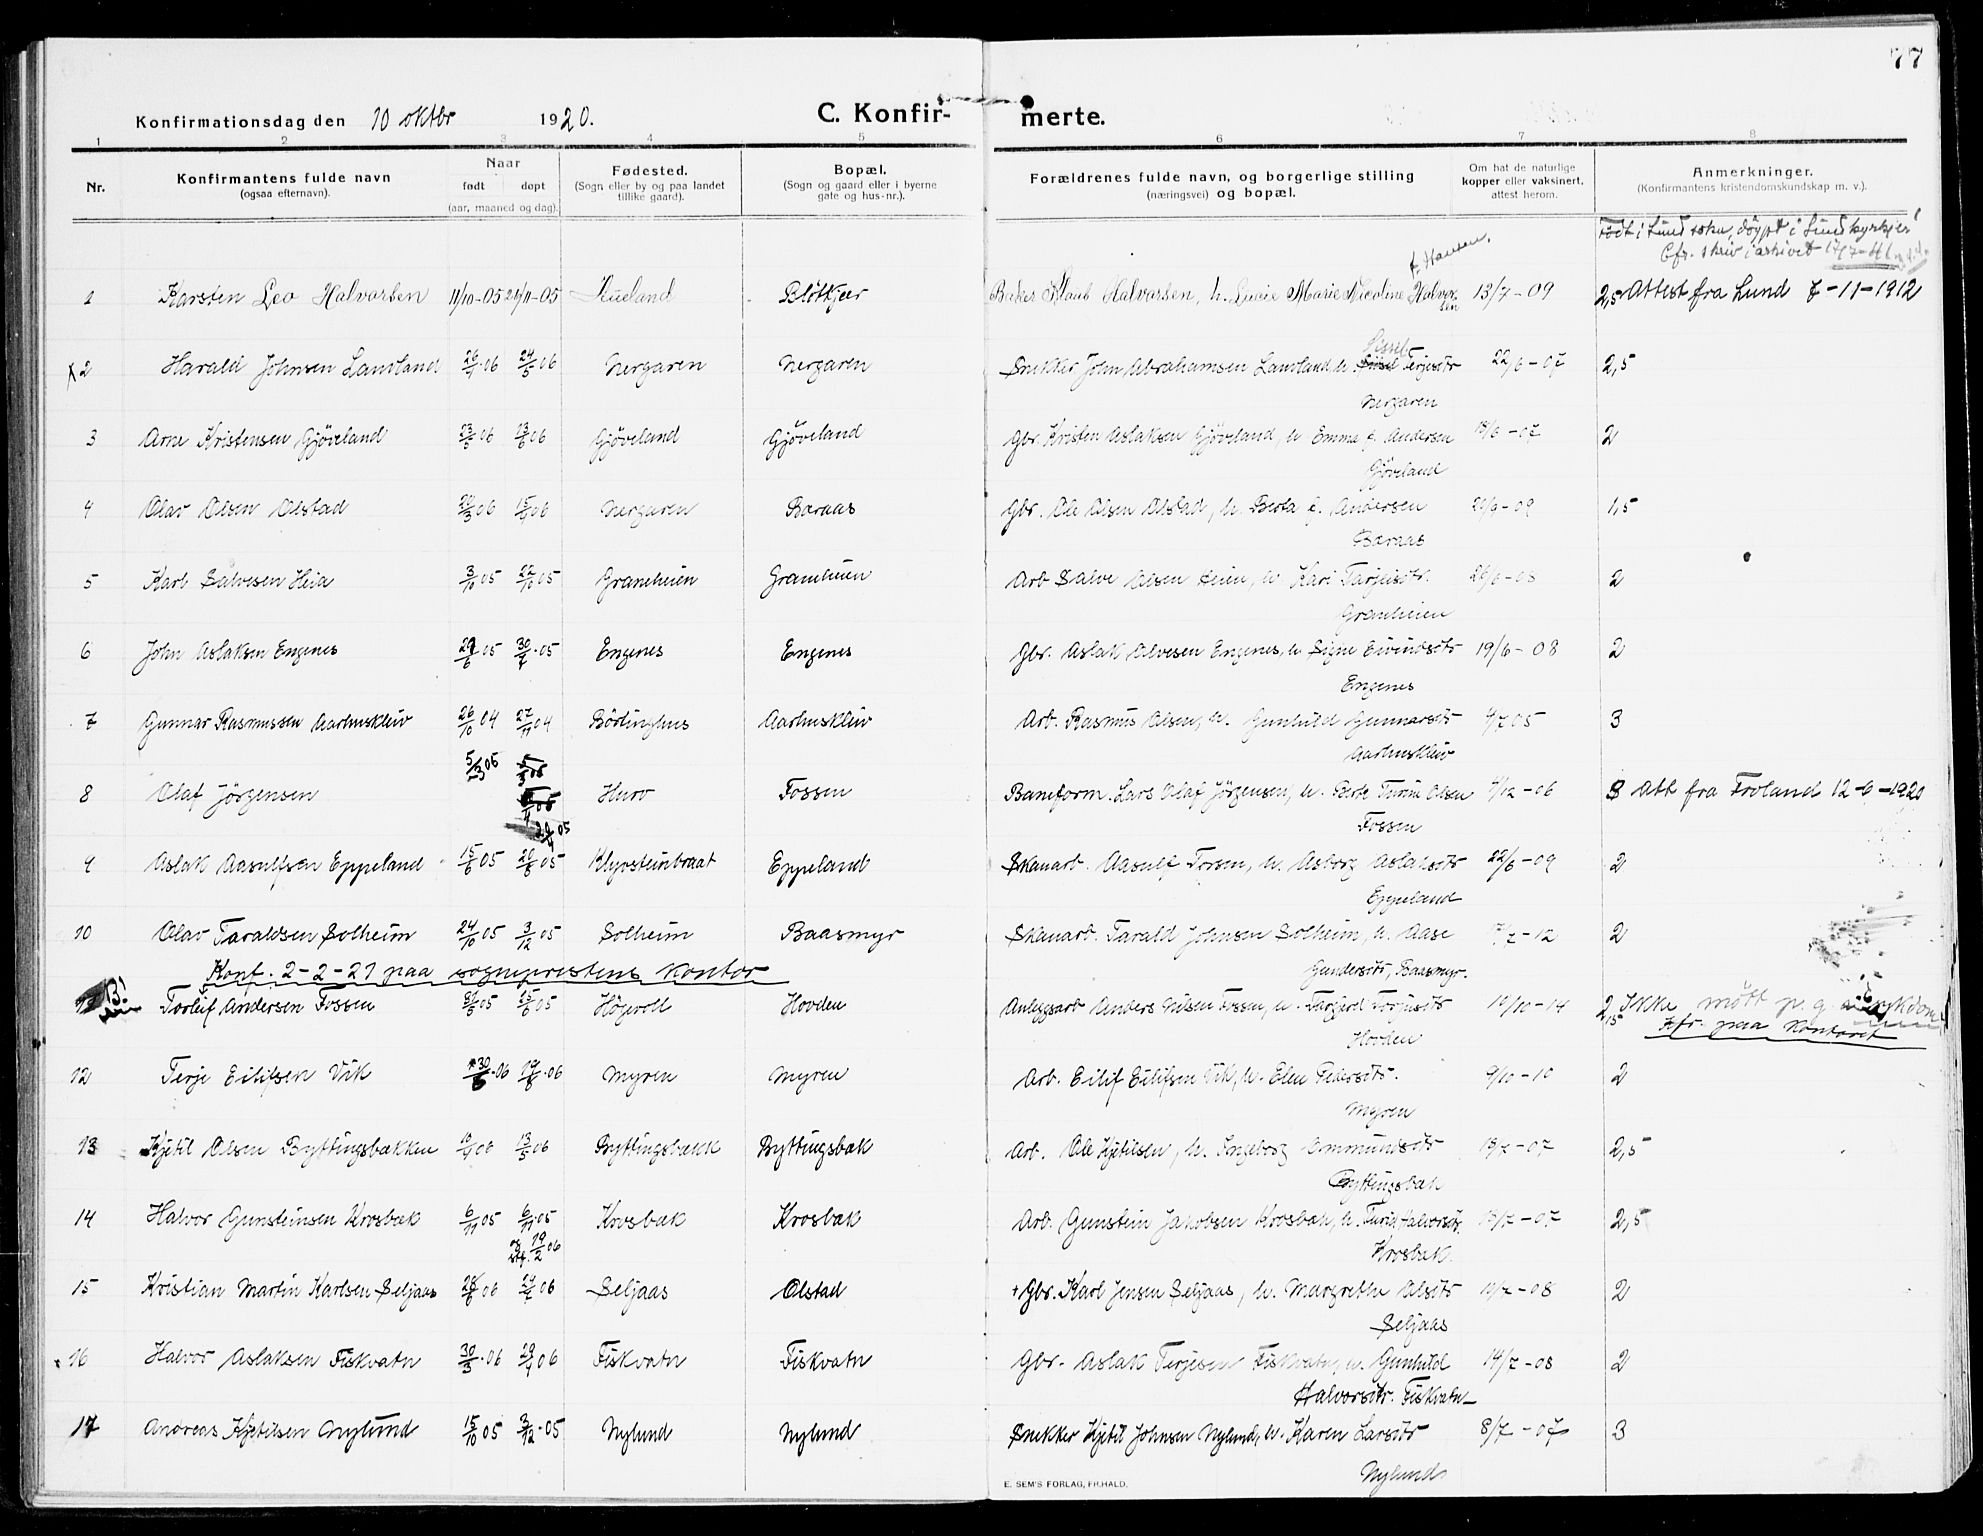 77
Konfirmationsdag den 10 oktbr 1920. C. Konfir- merte.
1 2 3 4 5 6 7 8
Nr. Konfirmantens fulde navn (ogsaa efternavn). Naar født døpt (aar, maaned og dag). Fødested. (Sogn eller by og paa landet tillike gaard). Bopæl. (Sogn og gaard eller i byerne gate og hus-nr.). Forældrenes fulde navn, og borgerlige stilling (næringsvei) og bopæl. Om hat de naturlige kopper eller vaksinert, attest herom. Anmerkninger. (Konfirmantens kristendomskundskap m. v.).
Født i Lund sokn, døypt i Lund kyrkje!
Cfr. skriv i arkivet 17/7-41
f. Hansen.
1 Karsten Leo Halvorsen 11/10-05 Blötkjær Baker Halvorsen, h. Lucie Marie Nicoline Halvorsen 13/7-09 2,5 Attest fra Lund 7-11-1912
Sissel
x2 Harald Johnsen Lauvland 26/4.06 24/5 06 Nergaren Nergaren Snekker John Abrahamsen Lauvland, h. Terjesdtr 22/6-07 2,5
Nergaren
3 Arne Kristensen Gjöveland 23/5 06 Gjöveland Gjöveland Gbr. Kristen Aslaksen Gjöveland, h. Emma f. Andersen 07 2
Gjöveland
4 Olav Olsen Olstad 06 Nergaren Baraas Gbr. Ole Olsen Olstad, h. Berta f. Andersen 09 1,5
Baraas
5 Karl Salvesen Heia 3/10 05 22/10 05 Granheien Granheien Arb. Salve Olsen Heien, h. Kari Tarjeisdtr. 26/6-08 2
Granheien
6 John Aslaksen Engenes 05 30/7.05 Engenes Engenes Gbr. Aslak Alvesen Engenes, h. Signe Eivindsdtr 19/6-08 2
Engenes
7 Gunnar Rasmussen Aarhuskleiv 26/10 04 27/11 04 Börtinghus Aarhuskleiv Arb. Rasmus Olsen, h. Gunhild Gunnarsdtr 4/7 05 3
Aarhuskleiv
8 Olaf Jörgensen 5/3 05 29/4 05 Hurv Fossen Baneform. Lars Olaf Jörgensen, h. Berte Turine Olsen 4/12-06 3 Att fra Froland 12-9-1920
Fossen
9 Aslak Aasulfsen Eppeland 15/6 05 20/8 05 Klyvsteinbraat Eppeland Skauarb. Aasulf Torsen, h. Asborg Aslaksdtr 22/6-09 2
Eppeland
10 Olav Taraldsen Solheim 24/10 05 3/12 05 Solheim Baasmyr Skauarb. Tarald Johnsen Solheim, h. Aase 12 2
Gundersdtr, Baasmyr.
Konf. 2-2-21 paa sogneprestens kontor
Torleif Andersen Fossen 05 05 Högvoll Hovden Anleggsarb Anders Nilsen Fossen, h. Targjerd Torjusdtr 10/10-14 2,5 Ikke mött p. g. a. sykdom
Hovden Kfr. paa kontoret
12 Terje Eilifsen Vik 30/6.06 19/8.06 Myren Myren Arb. Eilif Eilifsen Vik, h. Elen Pedersdtr. 9/10-10 2
Myren
13 Kjetil Olsen Byttingsbakken 06 13/5 06 Byttingsbekk Byttingsbak Arb. Ole Kjetilsen, h. Ingeborg Ommundsdtr 07 2,5
Byttingsbak
14 Halvor Gunsteinsen Krosbak 6/11 05 6/11.05 Krosbak Krosbak Arb. Gunstein Jakobsen Krosbak, h. Turid Halvorsdtr. 07 2,5
19/2 06 Krosbak.
15 Kristian Martin Karlsen Seljaas 28/6 06 06 Seljaas Olstad + Gbr. Karl Jensen Seljaas, h. Margrethe Olsdtr 08 2
Seljaas
16 Halvor Aslaksen Fiskvatn 30/3.06 29/4 06 Fiskvatn Fiskvatn Gbr. Aslak Terjesen Fiskvatn, h. Gunhild 14/7-08 2
Halvorsdtr. Fiskvatn
17 Andreas Kjetilsen Nylund 15/10 05 3/12.05 Nylund Nylund Snekker Kjetil Johnsen Nylund, h. Karen Larsdtr 8/7-07 3
Nylund
E. SEM'S FORLAG, FR.HALD.